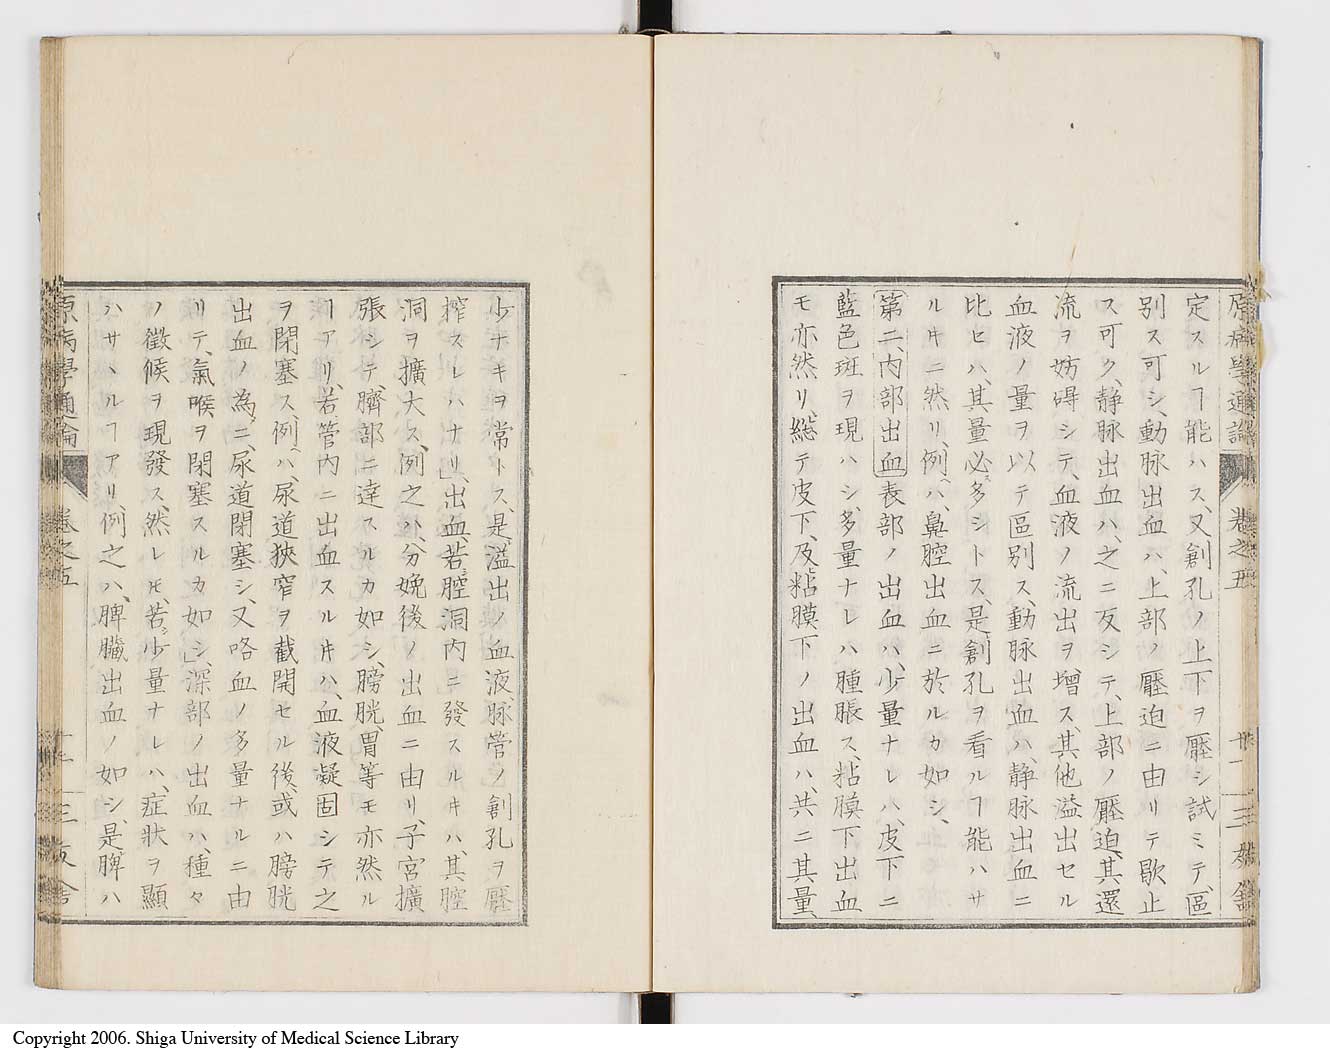 原病學通論 卷之五 廿一 三友舎
定スルヿ能ハス、又創孔ノ上下ヲ壓シ試ミテ、區
別ス可シ、動脉出血ハ、上部ノ壓迫ニ由リテ歇止
ス可ク、静脉出血ハ、之ニ反シテ、上部ノ壓迫、其還
流ヲ妨碍シテ、血液ノ流出ヲ増ス、其他溢出セル
血液ノ量ヲ以テ區別ス、動脉出血ハ、静脉出血ニ
比ヒハ、其量必多シトス、是創孔ヲ看ルヿ能ハサ
ルキニ然リ、例ハ、鼻腔出血ニ於ルカ如シ、
第二、内部出血 表部ノ出血ハ、少量ナレハ、皮下ニ
藍色斑ヲ現ハシ、多量ナレハ腫脹ス、粘膜下出血
モ亦然リ、総テ皮下、及粘膜下ノ出血ハ、共ニ其量、
少ナキヲ常トス、是溢出ノ血液、脉管ノ創孔ヲ壓
搾スレハナリ」、出血、若腔洞内ニ發スルキハ、其腔
洞ヲ擴大ス、例之ハ、分娩後ノ出血ニ由リ、子宮擴
張シテ、臍部ニ達スルカ如シ、膀胱、胃等モ亦然ル
ヿアリ、若管内ニ出血スルキハ、血液凝固シテ之
ヲ閉塞ス、例ハ、尿道狹窄ヲ截開セル後、或ハ膀胱
出血ノ為ニ、尿道閉塞シ、又咯血ノ多量ナルニ由
リテ、氣喉ヲ閉塞スルカ如シ」、深部ノ出血ハ、種々
ノ徴候ヲ現發ス、然レモ、若少量ナレハ、症狀ヲ顯
ハサヽルヿアリ、例之ハ、脾臓出血ノ如シ、是脾ハ
原病學通論 卷之五